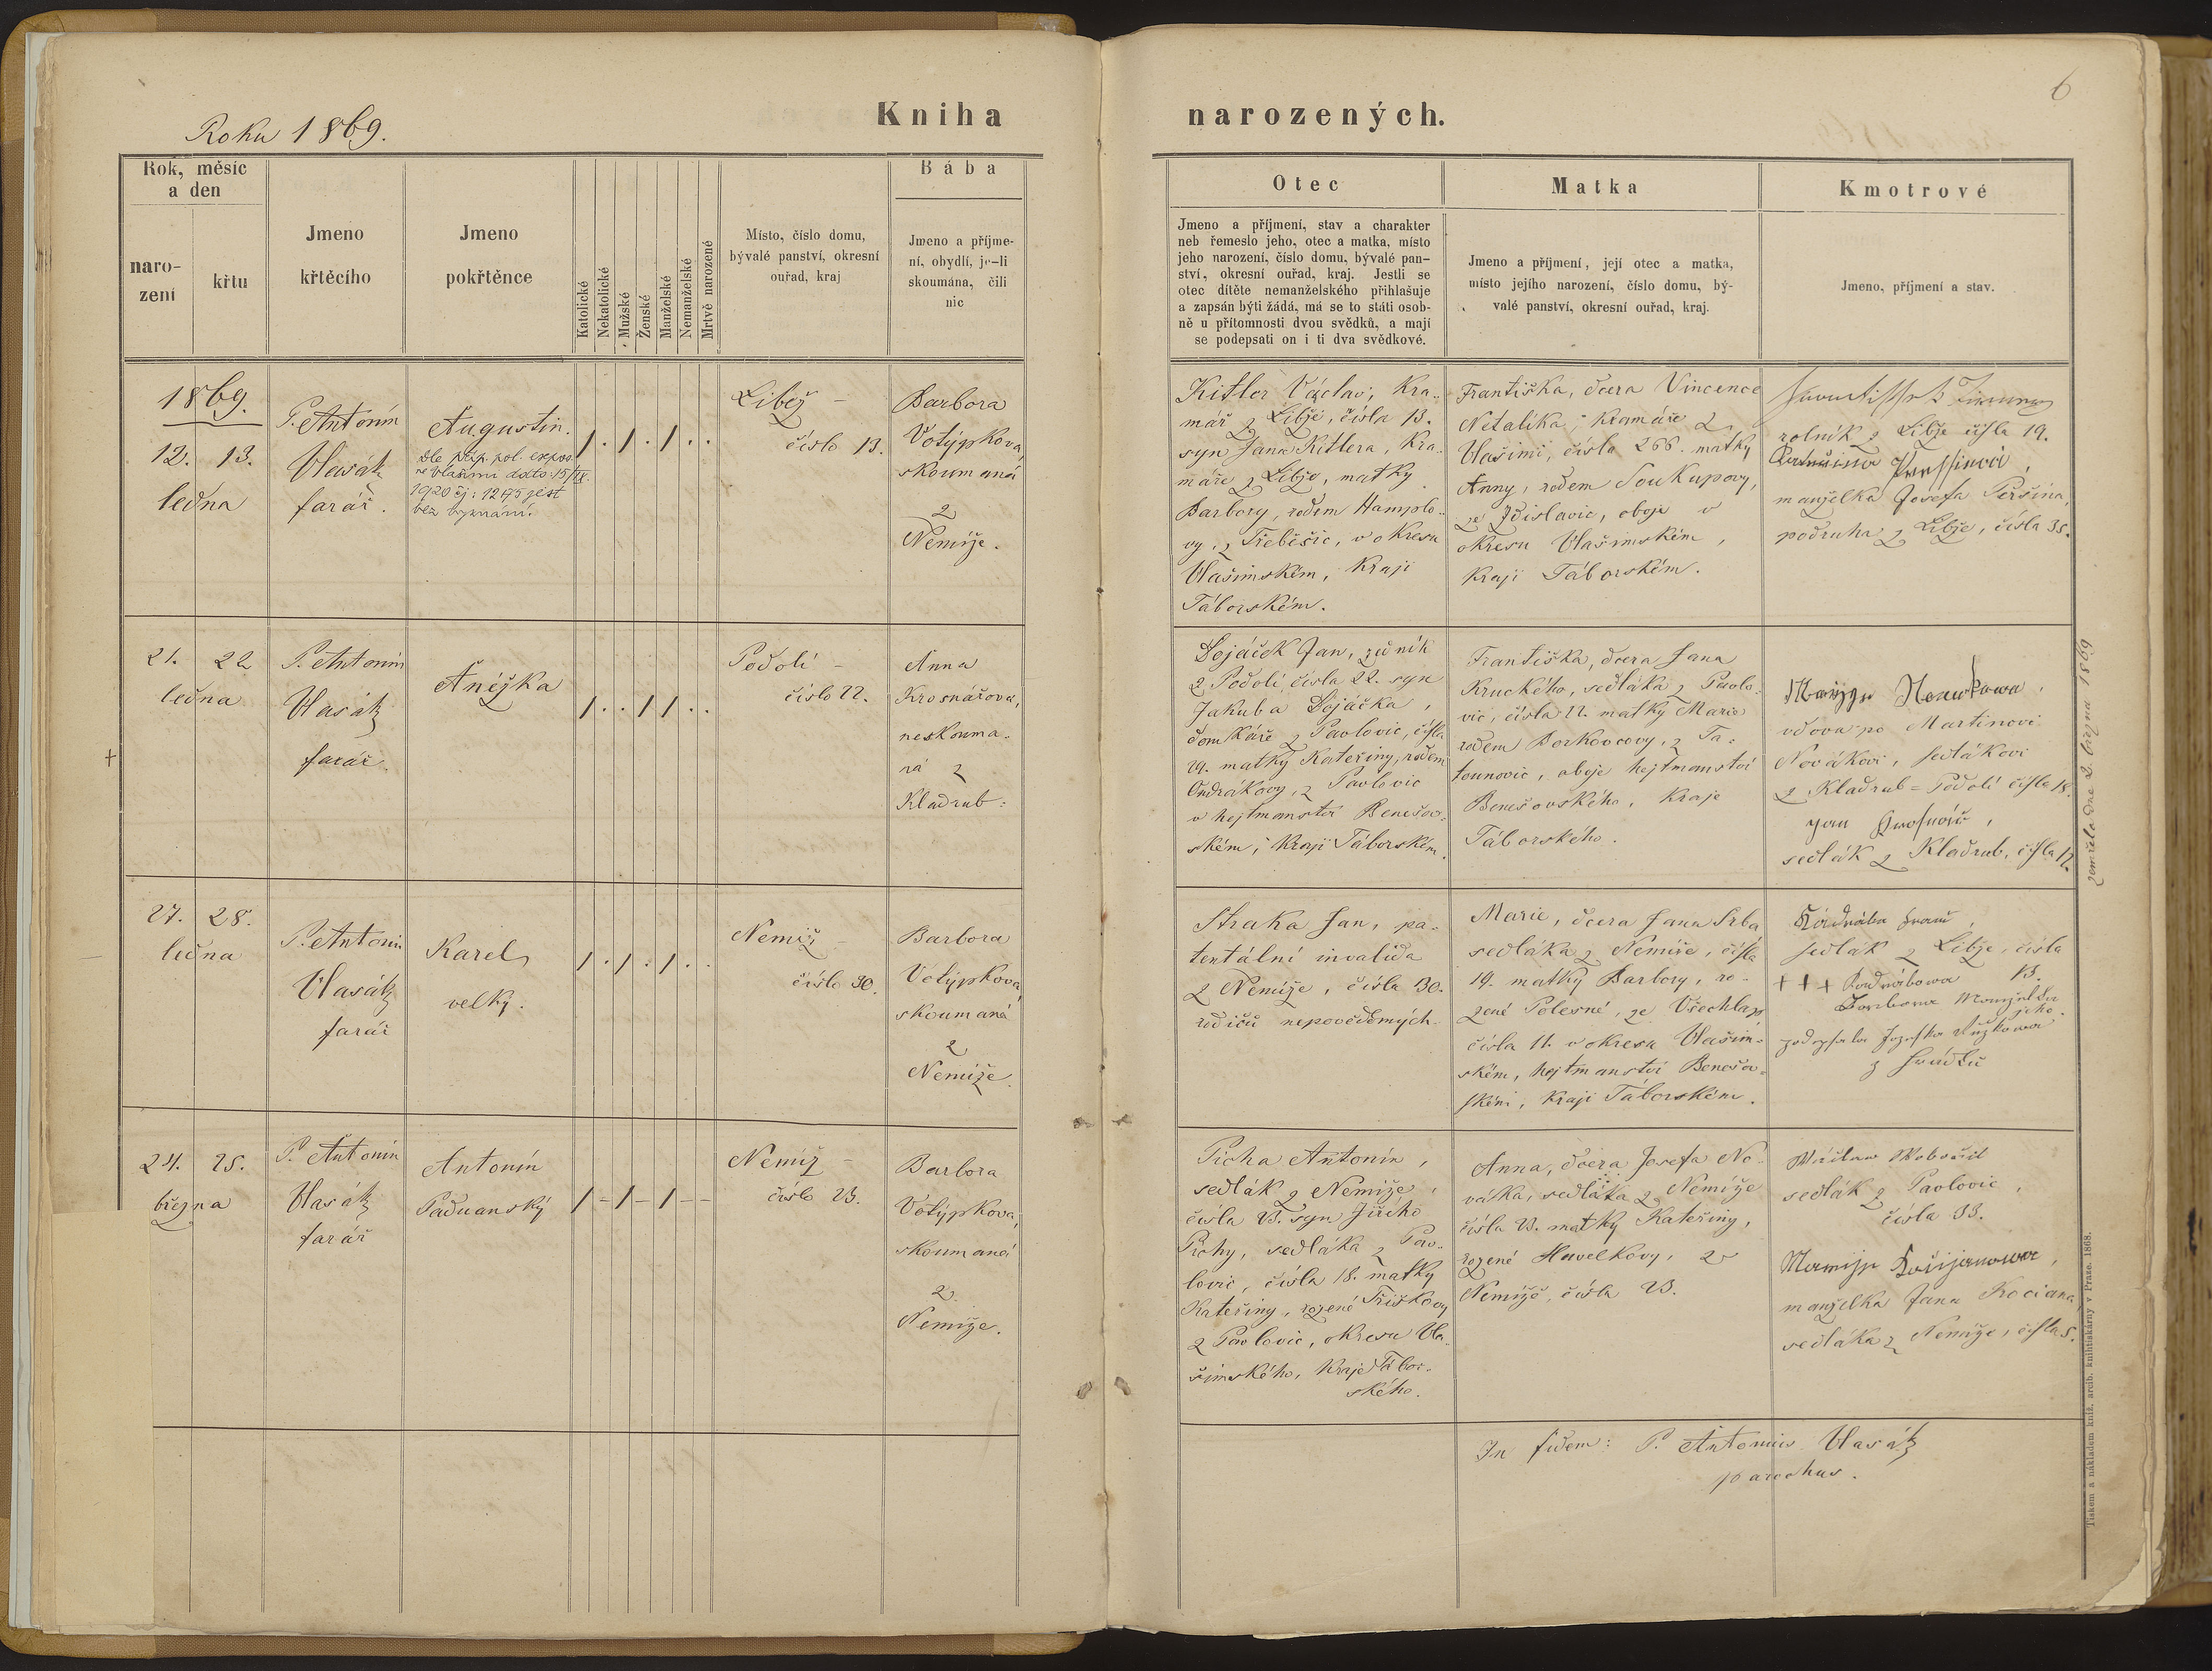 6
Roku 1869.
Kniha
narozených.
Rok, měsíc
a den
naro-
zení
křtu
Jmeno
křtěcího
Jmeno
pokřtěnce
Katolické
Nekatolické
Mužské
Ženské
Manželské
Nemanželské
Mrtvě narozené
Místo, číslo domu,
bývalé panství, okresní
ouřad, kraj
Bába
Jmeno a příjme-
ní, obydlí, je-li
skoumána, čili
nic
Otec
Jmeno a příjmení, stav a charakter
neb řemeslo jeho, otec a matka, místo
jeho narození, číslo domu, bývalé pan-
ství, okresní ouřad, kraj. Jestli se
otec dítěte nemanželského přihlašuje
a zapsán býti žádá, má se to státi osob-
ně u přítomnosti dvou svědků, a mají
se podepsati on i ti dva svědkové.
Matka
Jmeno a příjmení, její otec a matka,
místo jejího narození, číslo domu, bý-
valé panství, okresní ouřad, kraj.
Kmotrové
Jmeno, příjmení a stav.
1869.
12. 13.
ledna
P. Antonín
Vlasák
farář.
Augustin.
dle příp. pol. expos.
ve Vlašimi ddto: 15/IX.
1920 čj: 1295 jest
bez vyznání.
/ . / . / . .
Libež –
číslo 13.
Barbora
Votýpkova,
skoumaná
z
Nemíže.
Kitler Václav, kra-
mář z Libže, čísla 13.
syn Jana Kitlera, kra-
máře z Libže, matky
Barbory, rodem Hamplo-
vy, z Třeběšic, v okresu
Vlašimském, kraji
Táborském.
Františka, dcera Vincence
Netalíka, kramáře z
Vlašimi, číslo 266. matky
Anny, rodem Soukupovy,
ze Zdislavic, oboje v
okresu Vlašimském,
kraji Táborském.
rolník z Libže čísla 19.
manželka Josefa Peršína,
podruha z Libže, čísla 35.
21. 22
ledna
P. Antonín
Vlasák
farář.
Anéžka
/ . . / / . .
Podolí –
číslo 22.
Anna
Krosnářova,
neskouma-
ná z
Kladrub:
Dojáček Jan, zedník
z Podolí, čísla 22. syn
Jakuba Dojáčka,
domkáře z Pavlovic, čísla
29. matky Kateřiny, rodem
Ondrákovy, z Pavlovic
v hejtmanství Benešov-
ském, kraji Táborském.
Františka, dcera Jana
Kruckého, sedláka z Pavlo-
vic, čísla 22. matky Marie
rodem Borkovcovy, z Ta-
tounovic, oboje hejtmanství
Benešovského, kraje
Táborského.
Maryya Nowakowa,
vdova po Martinovi
Novákovi, sedlákovi
z Kladrub-Podolí čísla 18.
Jan Krosnář,
sedlák z Kladrub, čísla 12.
zemřela dne 2. března 1869
27. 28.
ledna
P. Antonín
Vlasák
farář
Karel
velký.
/ . / . / . .
Nemíž –
číslo 30.
Barbora
Votýpkova
skoumaná
z
Nemíže.
Straka Jan, pa-
tentální invalida
z Nemíže, čísla 30.
rodičů nepovědomých.
Marie, dcera Jana Srba
sedláka z Nemíže, čísla
19. matky Barbory, ro-
zené Polesné, ze Všechlap
čísla 11. v okresu Vlašim-
ském, hejtmanství Benešov-
ském, kraji Táborském.
sedlák z Libže, čísla
13.
+++ Kadrábowa
Barbora Manželka
jeho.
podepsala Jozefka Růžkowa
z Hrádku
24. 25.
března
P. Antonín
Vlasák
farář
Antonín
Paduanský
/ – / – / – –
Nemíž –
číslo 23.
Barbora
Votýpkova,
skoumaná
z
Nemíže.
Pícha Antonín,
sedlák z Nemíže,
čísla 23. syn Jiřího
Píchy, sedláka z Pav-
lovic, čísla 18. matky
Kateřiny, rozené Tříškovy
z Pavlovic, okresu Vla-
šimského, kraje Tábor-
ského.
Anna, dcera Josefa No-
váka, sedláka z Nemíže
čísla 23. matky Kateřiny,
rozené Havelkovy, z
Nemíže, čísla 23.
Wáclaw Wobořil
sedlák z Pavlovic,
čísla 33.
Marnije Kocijanowa,
manželka Jana Kociana,
sedláka z Nemíže, čísla 5.
In fidem: P. Antonius Vlasák
parochus.
Tiskem a nákladem kníž. arcib. knihtiskárny v Praze. 1868.